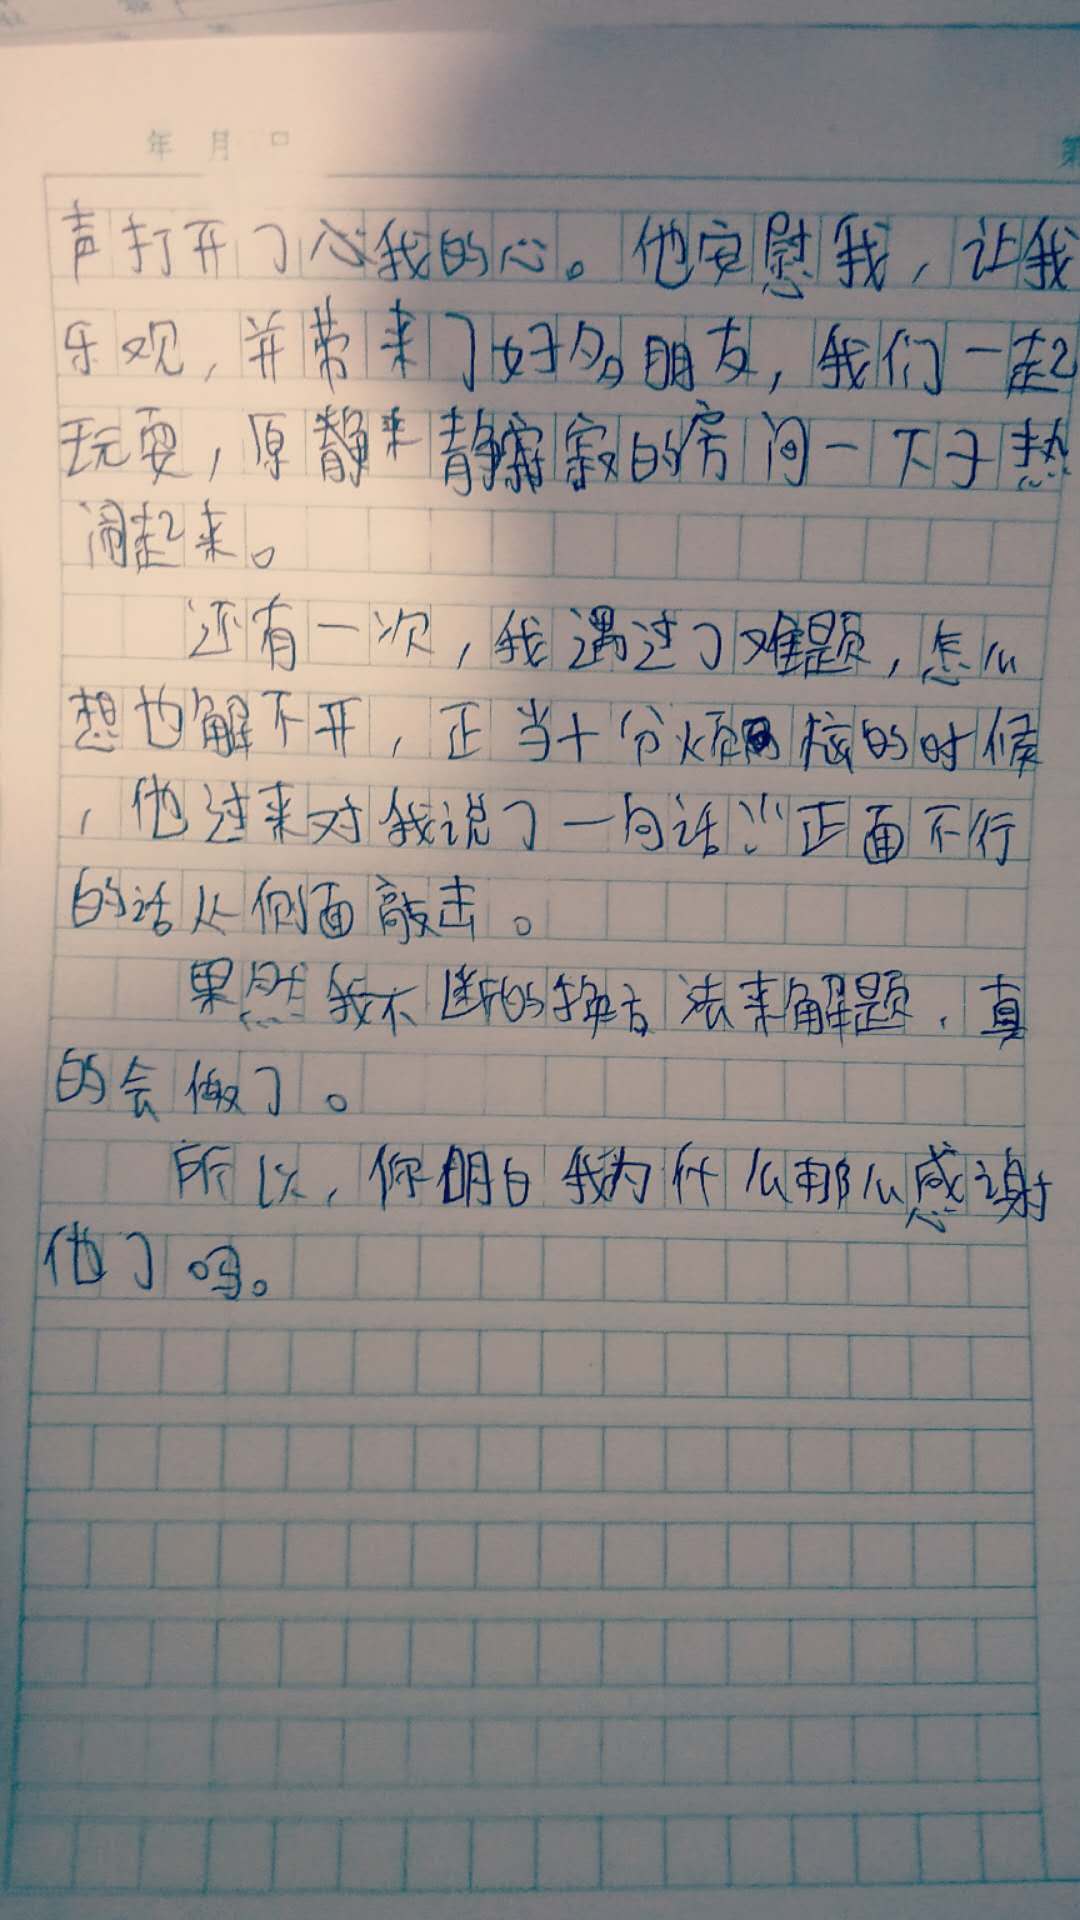 年 月 日
声打开了心我的心。他安慰我，让我
乐观，并带来了好多朋友，我们一起
玩耍，原静来静寂的房间一下子热
闹起来。
还有一次，我遇过了难题，怎么
想也解不开，正当十分烦恼的时候
，他过来对我说了一句话：“正面不行
的话从侧面敲击。
果然我不断的换方法来解题，真
的会做了。
所以，你明白我为什么那么感谢
他了吗。